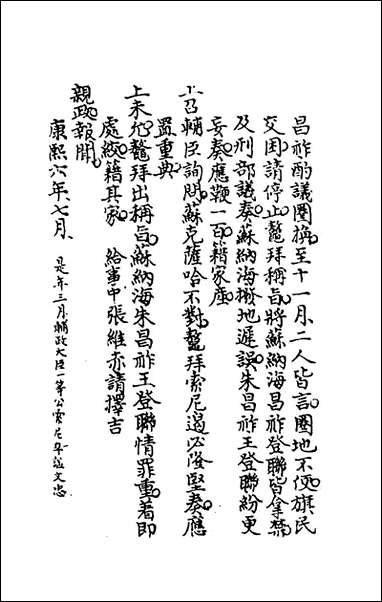 昌祚酌議圈換至十一月二人皆言圈地不便旗民
交困請停止鼇拜稱旨將蘇納海昌祚登聯皆拿禁
及刑部議奏蘇納海撥地遲誤朱昌祚王登聯紛更
妄奏應鞭一百籍家產
上召輔臣詢問蘇克薩哈不對鼇拜索尼遏必隆堅奏應
置重典
上未允鼇拜出稱旨蘇納海朱昌祚王登聯情罪重著即
處絞籍其家 給事中張維赤請擇吉
親政報聞
康熙六年七月 是年三月輔政大臣一等公索尼卒謚文忠